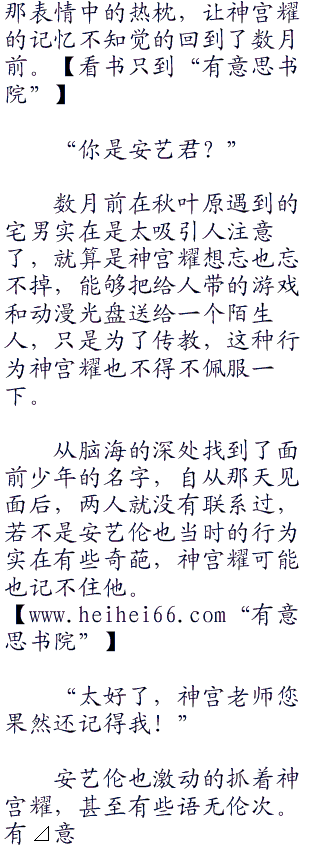 那表情中的热枕，让神宫耀
的记忆不知觉的回到了数月
前。【看书只到“有意思书
院”】
“你是安艺君？”
数月前在秋叶原遇到的
宅男实在是太吸引人注意
了，就算是神宫耀想忘也忘
不掉，能够把给人带的游戏
和动漫光盘送给一个陌生
人，只是为了传教，这种行
为神宫耀也不得不佩服一
下。
从脑海的深处找到了面
前少年的名字，自从那天见
面后，两人就没有联系过，
若不是安艺伦也当时的行为
实在有些奇葩，神宫耀可能
也记不住他。
【www.heihei66.com“有意
思书院”】
“太好了，神宫老师您
果然还记得我！”
安艺伦也激动的抓着神
宫耀，甚至有些语无伦次。
有⊿意